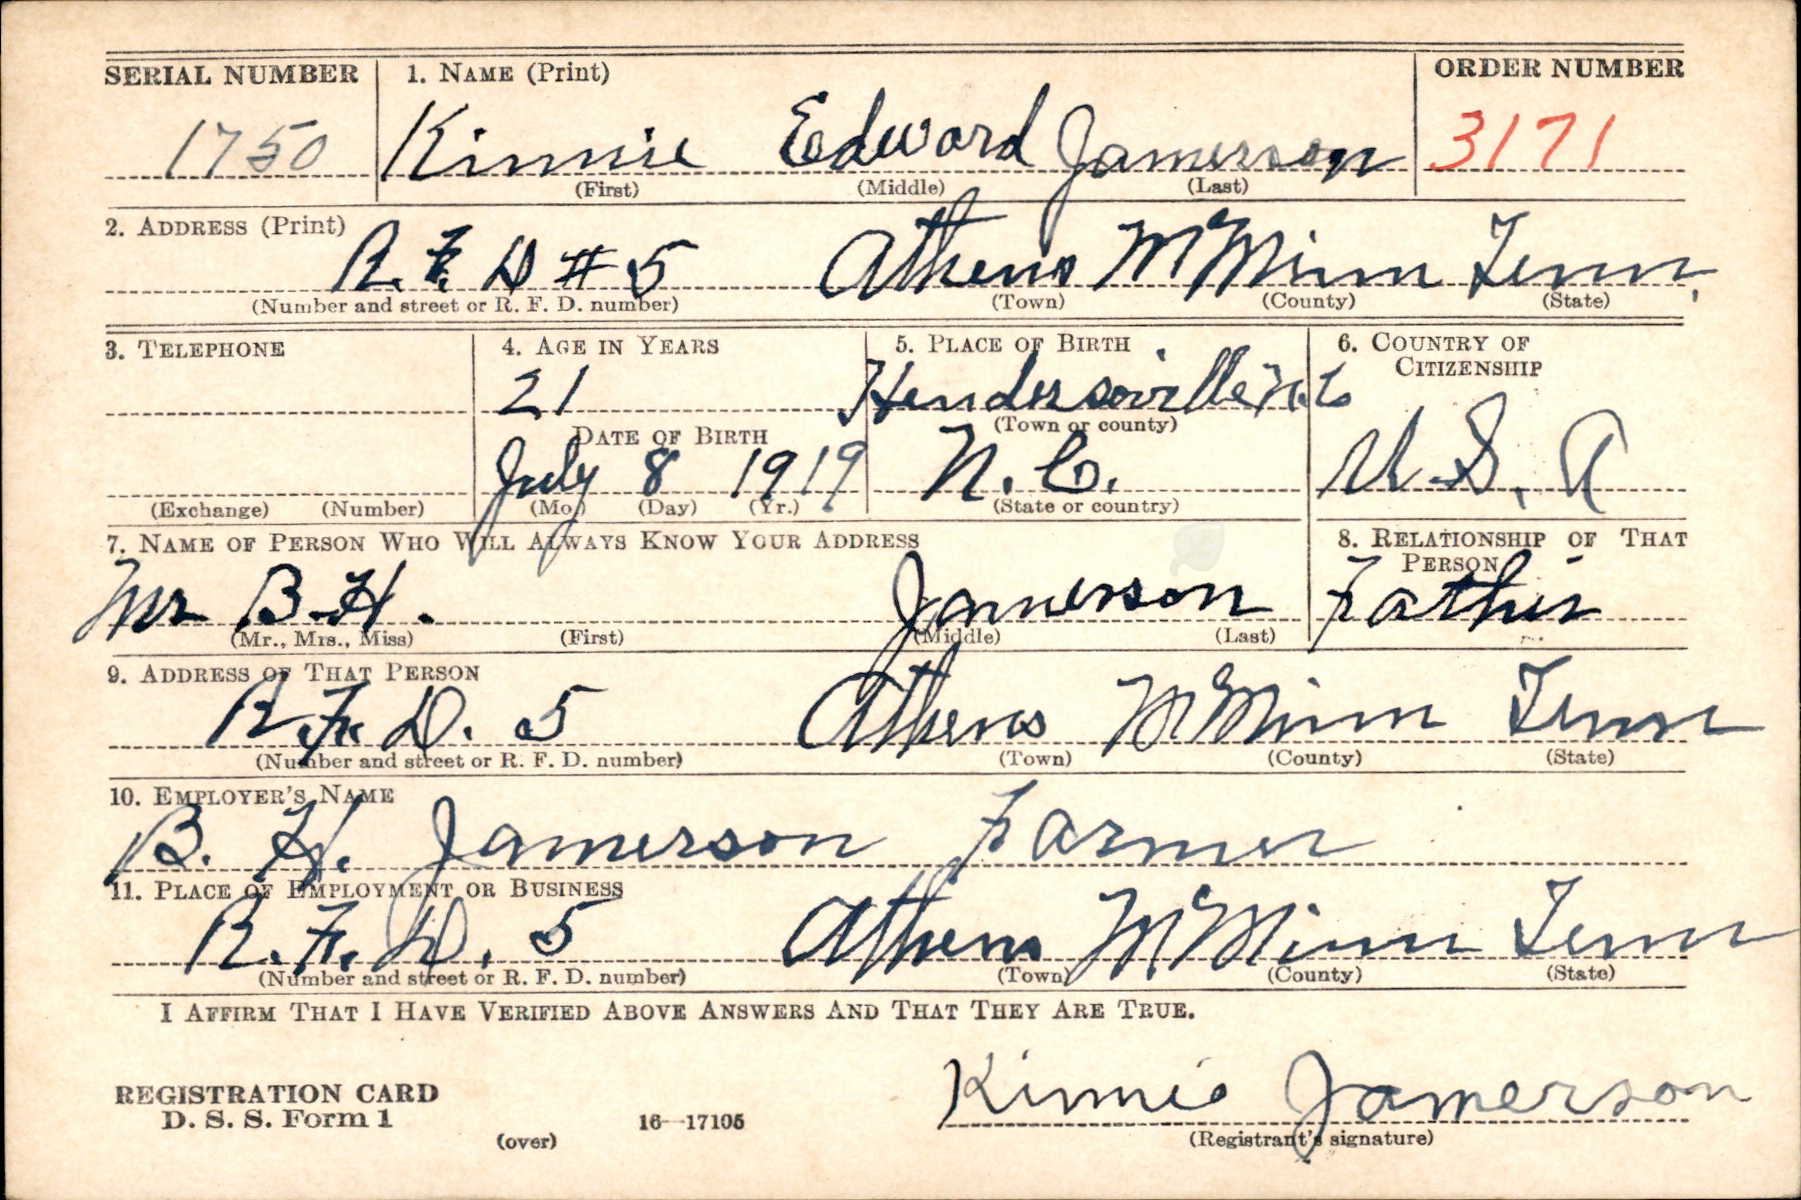 SERIAL NUMBER 1. NAME (Print) ORDER NUMBER
1750 Kinnie Edward Jamerson 3171
(First) (Middle) (Last)
2. ADDRESS (Print)
R. F. D # 5 Athens McMinn Tenn.
(Number and street or R. F. D. number) (Town) (County) (State)
3. TELEPHONE 4. AGE IN YEARS 5. PLACE OF BIRTH 6. COUNTRY OF CITIZENSHIP
21 Hendersoville N.C
DATE OF BIRTH (Town or county)
July 8 1919 N. C. U. S. A
(Exchange) (Number) (Mo.) (Day) (Yr.) (State or country)
7. NAME OF PERSON WHO WILL ALWAYS KNOW YOUR ADDRESS 8. RELATIONSHIP OF THAT PERSON
Mr B. H. Jamerson Father
(Mr., Mrs., Miss) (First) (Middle) (Last)
9. ADDRESS OF THAT PERSON
R. F. D. 5 Athens McMinn Tenn
(Number and street or R. F. D. number) (Town) (County) (State)
10. EMPLOYER'S NAME
B. H. Jamerson Farmer
11. PLACE OF EMPLOYMENT OR BUSINESS
R. F. D. 5 Athens McMinn Tenn
(Number and street or R. F. D. number) (Town) (County) (State)
I AFFIRM THAT I HAVE VERIFIED ABOVE ANSWERS AND THAT THEY ARE TRUE.
Kinnie Jamerson
REGISTRATION CARD
D. S. S. Form 1 16—17105
(over) (Registrant's signature)